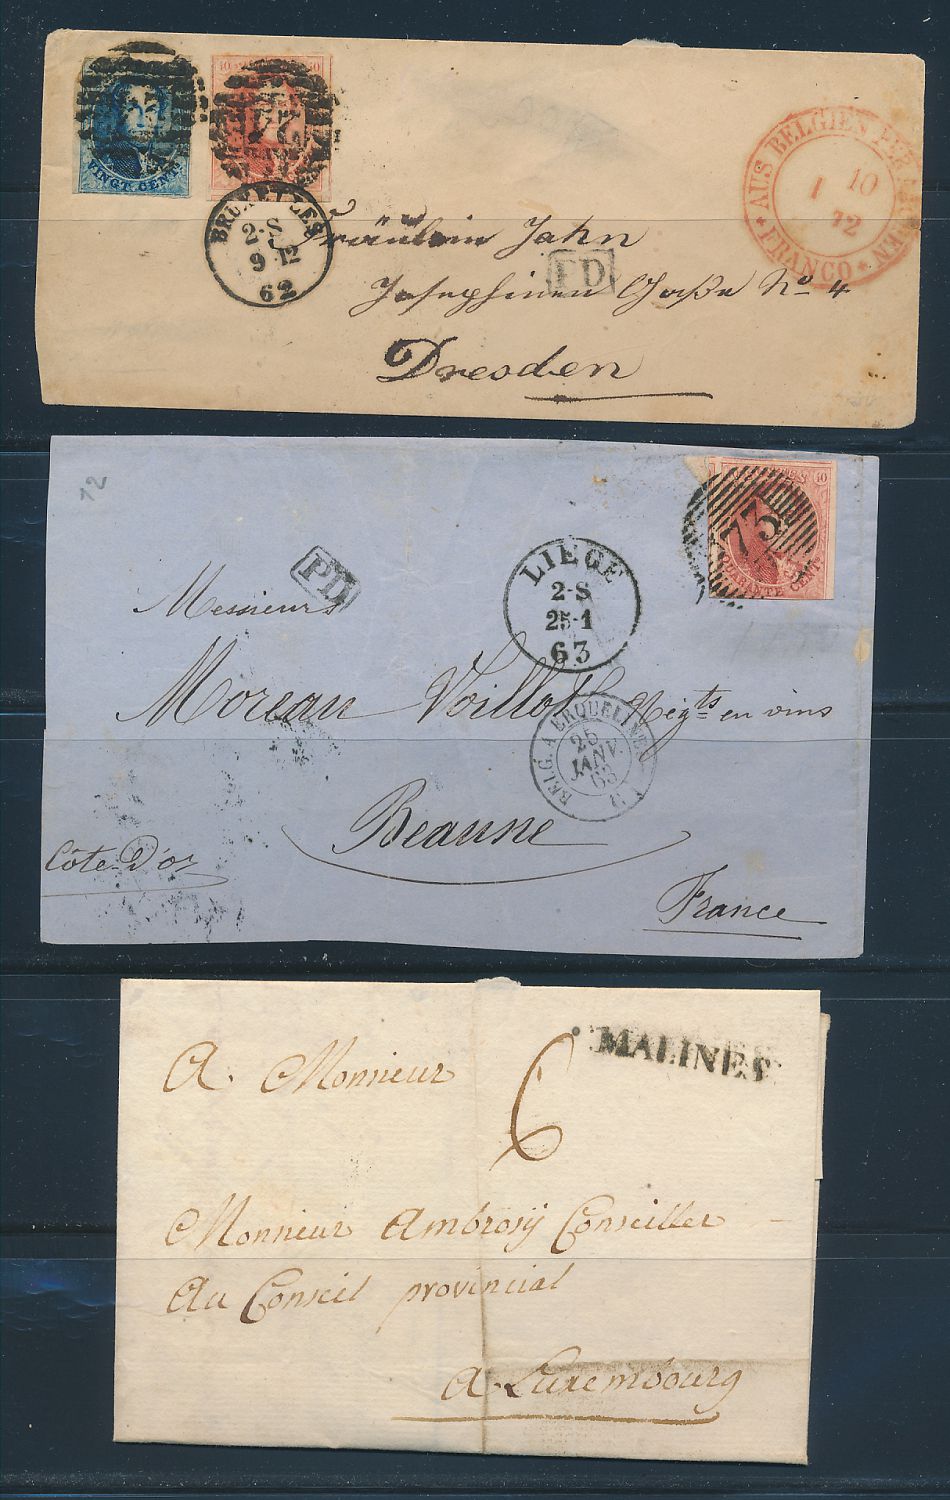 VINGT. CENTS
10 10
24
BRUXELLES
2-S
9-12
62
AUS BELGIEN PER
1 10
12
* FRANCO *
Fräulein Jahn
PD
Josephinen Gaße No 4
Dresden
12
PD
LIÈGE
2-S
25-1
63
10
73
QUARANTE CENTS
Messieurs
Moreau Voillot Négts en vins
BELG. A ERQUELINES
25
JANV.
63
Beaune
Côte-D'or
France
MALINES
6
A Monsieur
Monsieur Ambrosÿ Conseiller
Au Conseil provincial
a Luxembourg